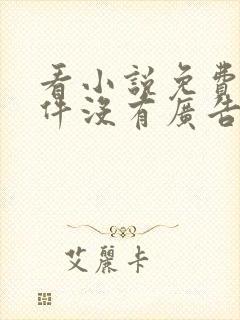 看小說免費
件沒有廣告
艾麗卡